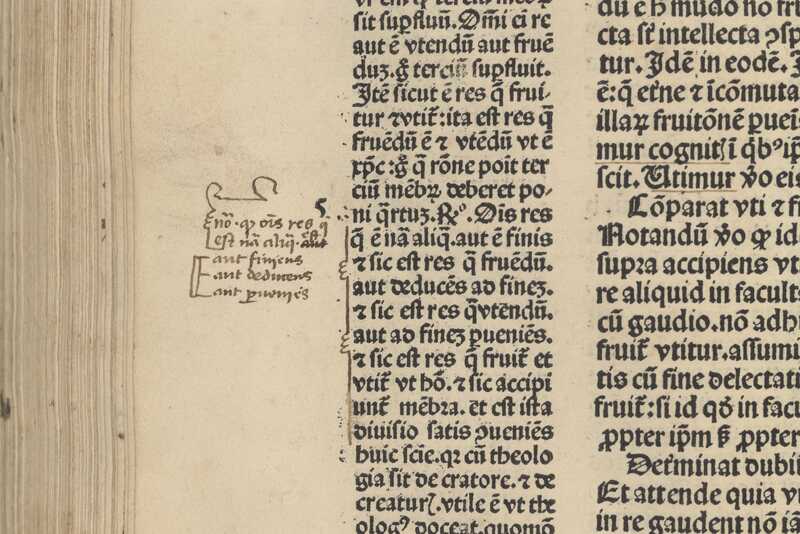 sit supfluũ. Om̃i ei re
aut ē vtendũ aut fruē
duꝫ. g̃ terciũ supfluit.
Itē sicut ē res q̃ frui-
tur ⁊ vtit̃: ita est res q̃
fruēdũ ē ⁊ vtēdũ vt ē
xp̃c: g̃ q̃ rõne poĩt ter
ciũ mēbꝝ deberet po-
ni q̃rtuꝫ. ꝶº. Om̃s res
q̃ ē nã aliq̃. aut ē finis
⁊ sic est res q̃ fruēdũ.
aut deducēs ad fineꝫ.
⁊ sic est res q̃ vtendũ.
aut ad fineꝫ ꝓueniēs.
⁊ sic est res q̃ fruit̃ et
vtit̃ vt hõ. ⁊ sic accipi
unt̃ mēbra. et est ista
diuisio satis ꝯueniēs
huic sciē. qꝛ cũ theolo
gia sit de cratore. ⁊ de
creaturꝭ. vtile ē vt the
ologꝰ doceat. quomõ
nõ. ꝙ oĩs res q̃
est nã aliq̃. aut
aut finiens
aut deducens
aut ꝓueniēs
dũ ē h̃ mũdo nõ
cta sĩt intellecta
tur. Idē in eodē.
ē: q̃ et̃ne ⁊ ĩcõmuta
illaꝝ fruitõnē
mur cognitꝭ ĩ q̃bꝰ ip̃
scit. Utimur v̾o eis
Cõparat vti ⁊
Notandũ v̾o ꝙ id
supra accipiens vt
re aliquid in facult
cũ gaudio. nõ adh
fruit̃ vtitur. assumi
tis cũ fine delectati
fruit̃: si id qd̃ in facu
ꝓpter ip̃m ꝓpter
Det̃minat dubi
Et attende quia v
in re gaudent nõ iã